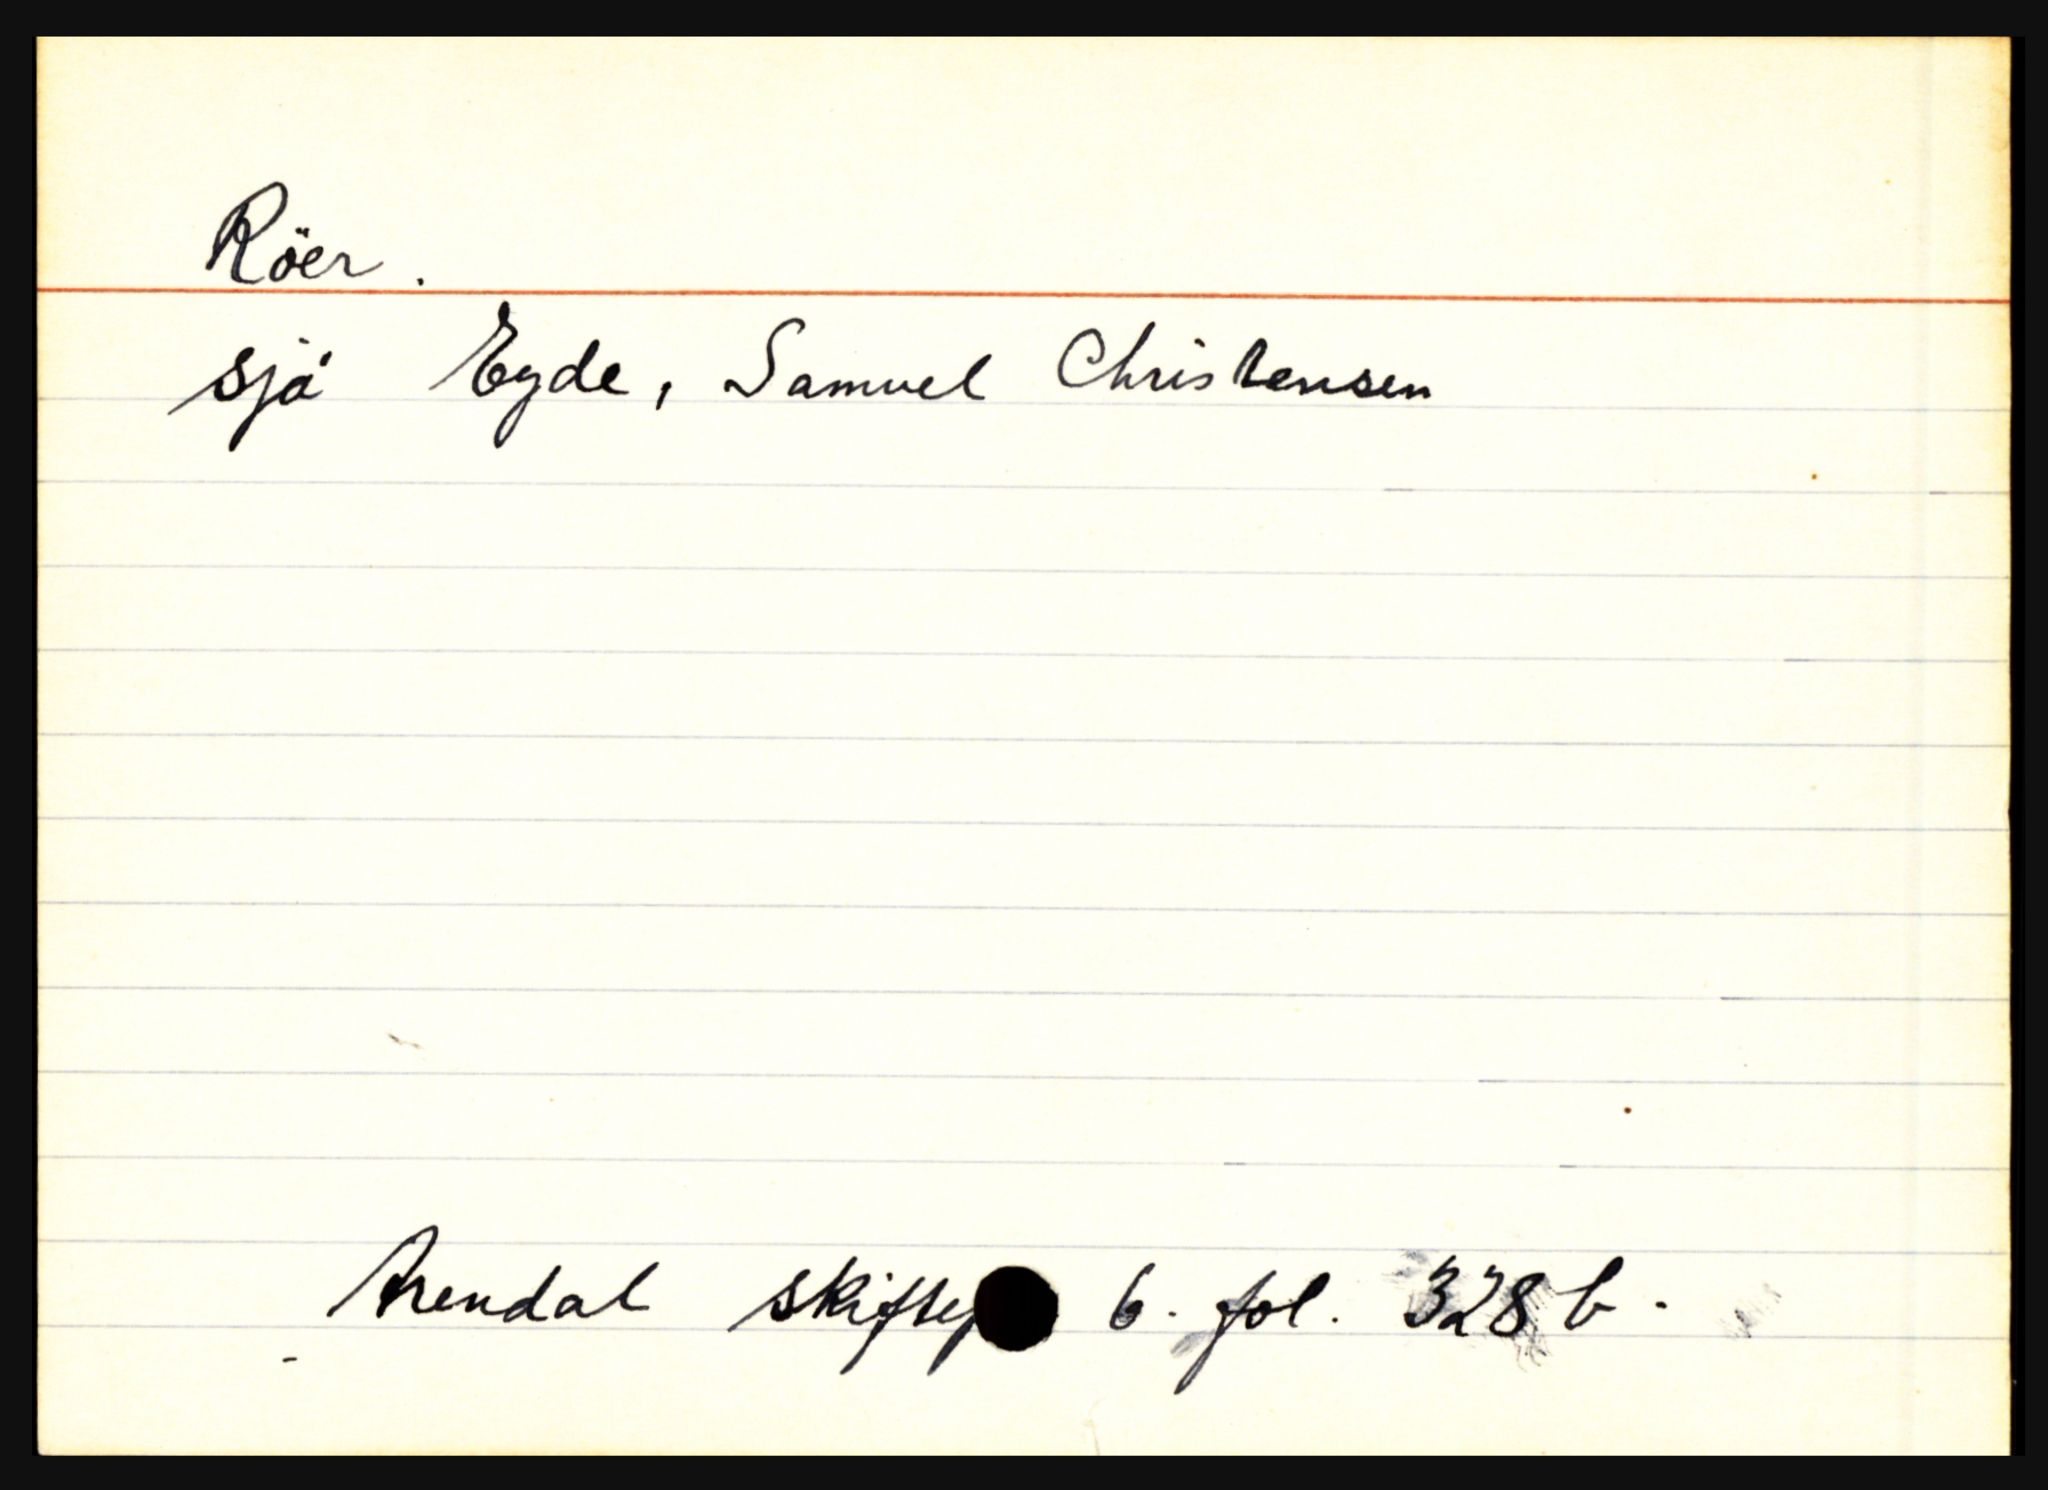 Röer.
sjå Eyde, Samuel Christensen
Arendal skiftep 6. fol. 328 b.